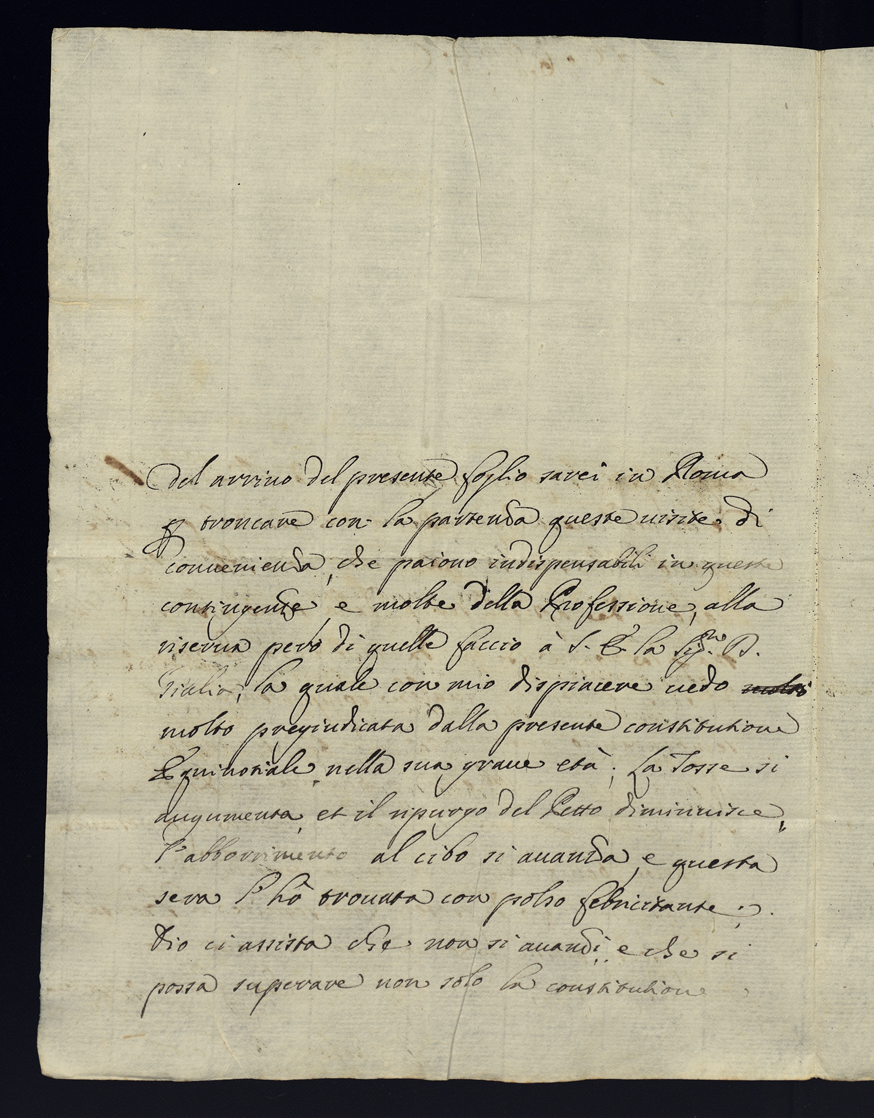 Del arrivo del presente foglio sarei in Roma
troncare con la partenza queste visite di
convenienza, che paiono indispensabili in queste
contingenze, e molte della Professione, alla
riserva però di quelle faccio à S. E. la Sig.ra D.
Giulia, la quale con mio dispiacere vedo
molto pregiudicata dalla presente constitutione
Equinotiale, nella sua grave età; La Tosse si
augumenta, et il ripurgo del Petto diminuisce,
l'abborrimento al cibo si avanza, e questa
sera l'hò trovata con polso febricitante;
Dio ci assista che non si avanzi, e che si
possa superare non solo la constitutione